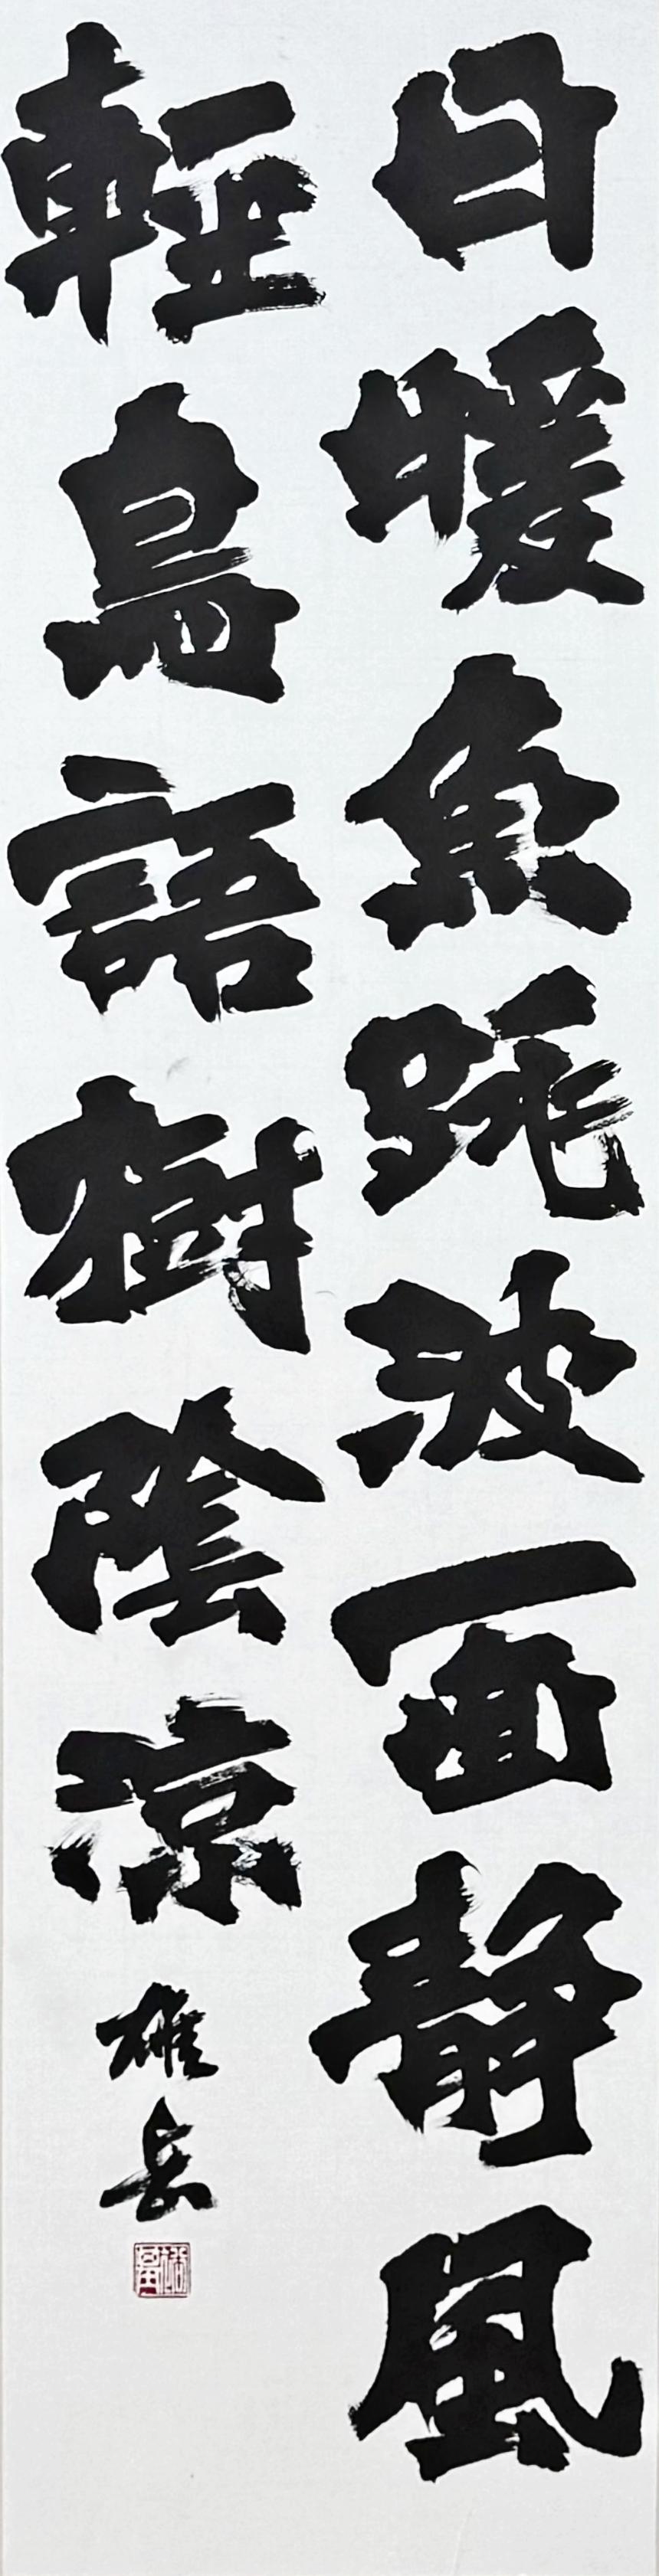 日暖魚跳波面靜風
輕鳥語樹陰涼
雄岳